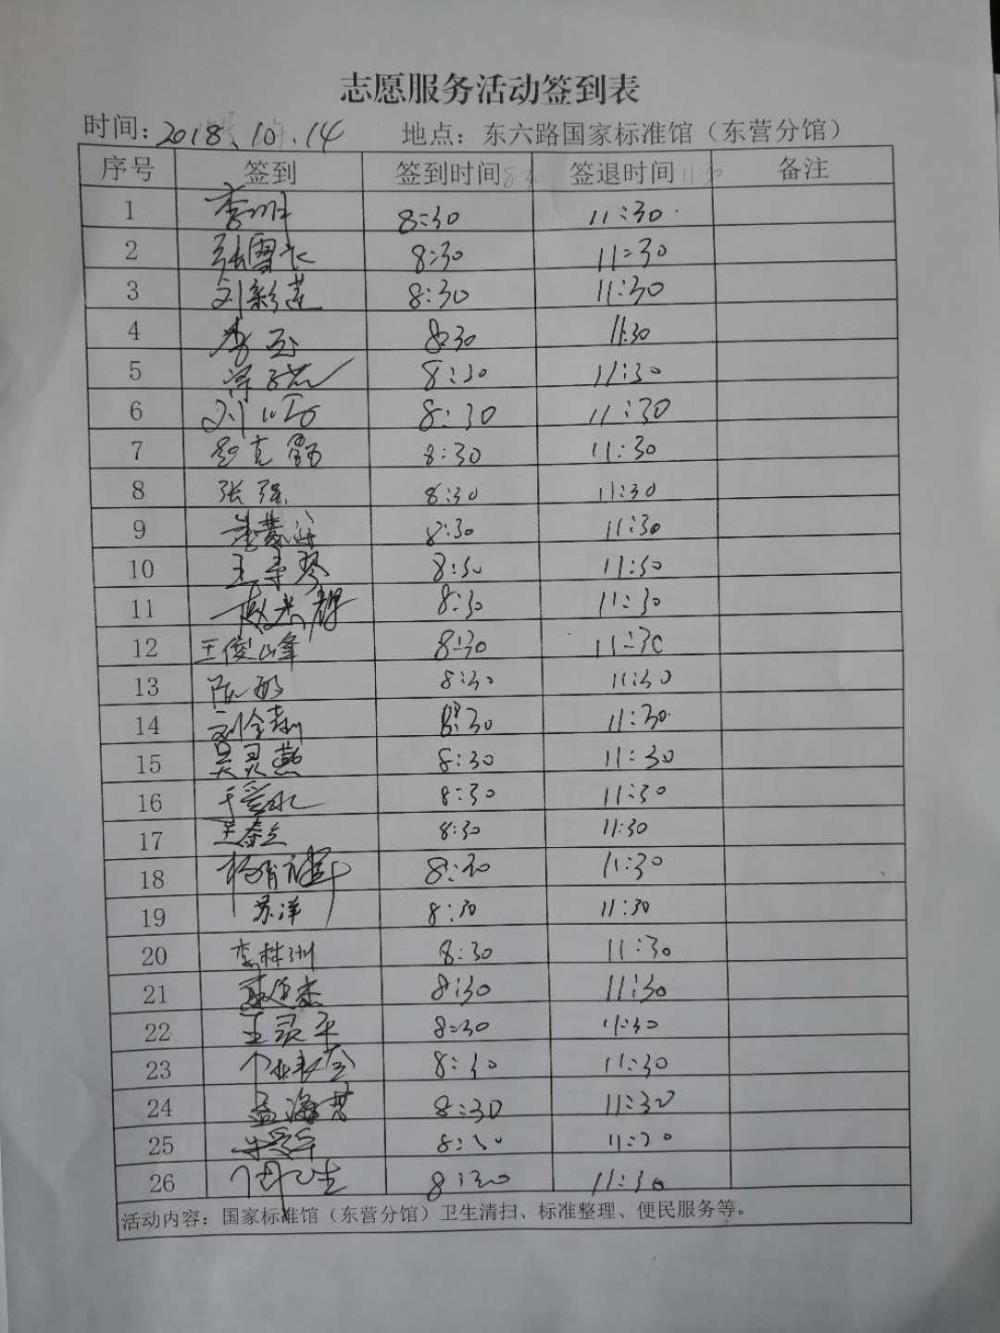 志愿服务活动签到表
时间：2018.10.14 地点：东六路国家标准馆（东营分馆）
序号 签到 签到时间 签退时间 备注
1 8:30 11:30
2 张雪 8:30 11:30
3 刘彩莲 8:30 11:30
4 8:30 11:30
5 8:30 11:30
6 刘 8:30 11:30
7 克勤 8:30 11:30
8 张强 8:30 11:30
9 8:30 11:30
10 王秀琴 8:30 11:30
11 赵 8:30 11:30
12 王俊峰 8:30 11:30
13 8:30 11:30
14 刘金 8:30 11:30
15 吴灵燕 8:30 11:30
16 于爱水 8:30 11:30
17 王春 8:30 11:30
18 杨 8:30 11:30
19 苏洋 8:30 11:30
20 李林洲 8:30 11:30
21 8:30 11:30
22 王灵平 8:30 11:30
23 8:30 11:30
24 孟海 8:30 11:30
25 8:30 11:30
26 周 生 8:30 11:30
活动内容：国家标准馆（东营分馆）卫生清扫、标准整理、便民服务等。